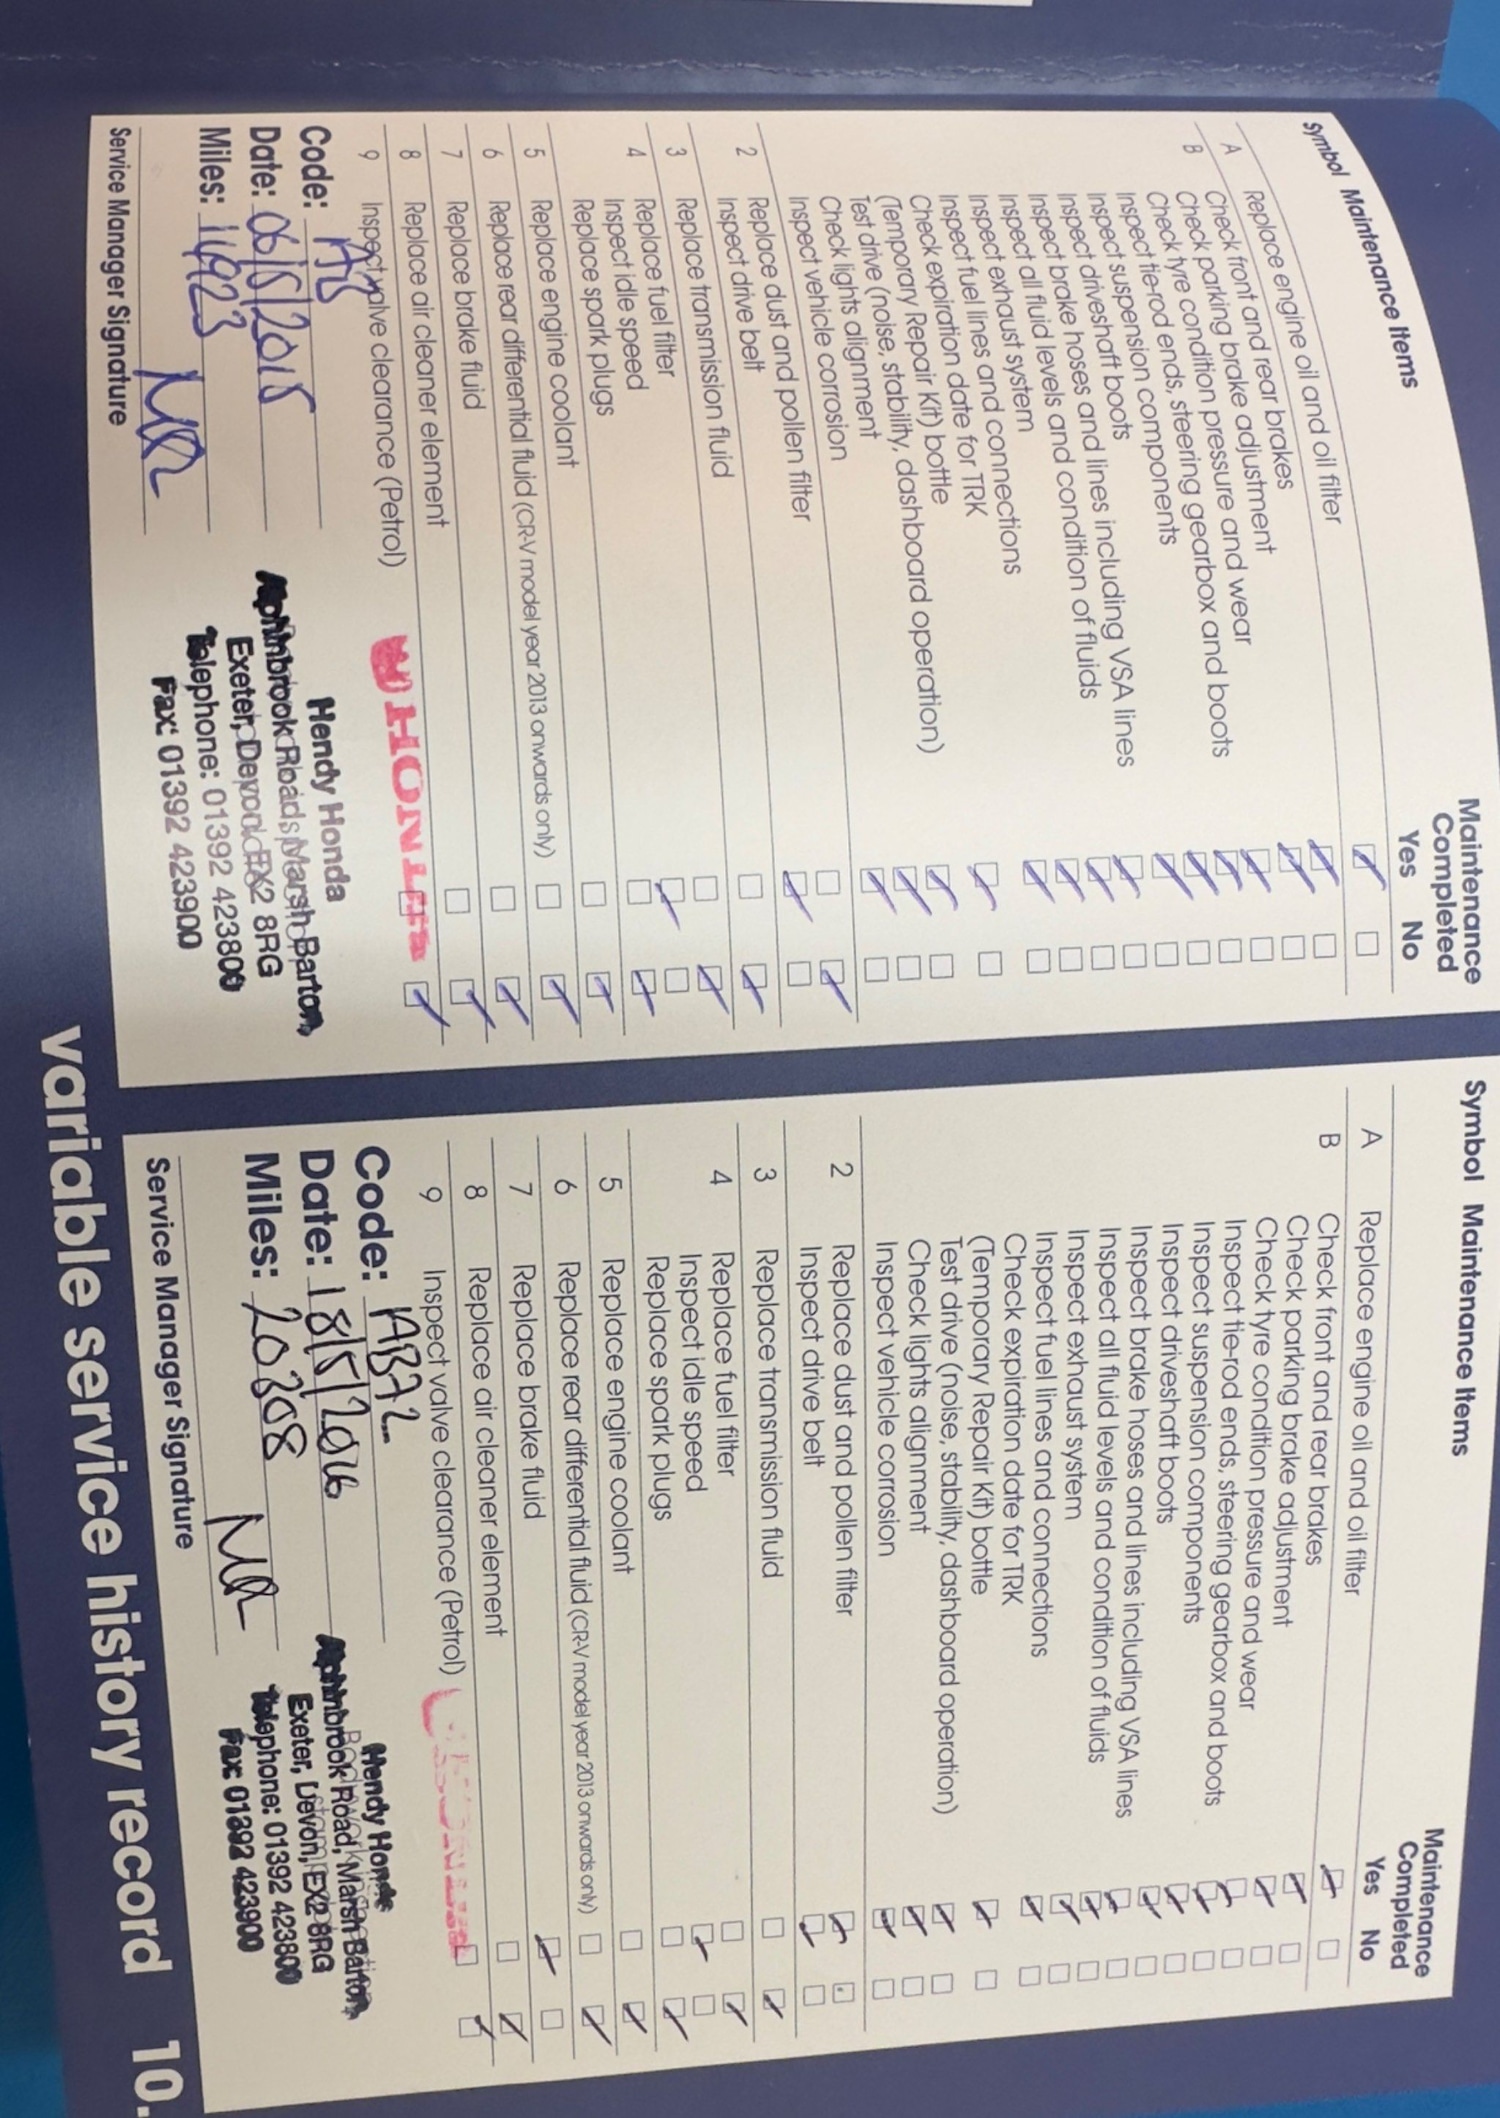 Symbol Maintenance Items
Maintenance
Completed
Yes No
A Replace engine oil and oil filter
B Check front and rear brakes
Check parking brake adjustment
Check tyre condition pressure and wear
Inspect tie-rod ends, steering gearbox and boots
Inspect suspension components
Inspect driveshaft boots
Inspect brake hoses and lines including VSA lines
Inspect all fluid levels and condition of fluids
Inspect exhaust system
Inspect fuel lines and connections
Check expiration date for TRK
(Temporary Repair Kit) bottle
Test drive (noise, stability, dashboard operation)
Check lights alignment
Inspect vehicle corrosion
2 Replace dust and pollen filter
Inspect drive belt
3 Replace transmission fluid
4 Replace fuel filter
Inspect idle speed
Replace spark plugs
5 Replace engine coolant
6 Replace rear differential fluid (CR-V model year 2013 onwards only)
7 Replace brake fluid
8 Replace air cleaner element
9 Inspect valve clearance (Petrol)
HONDA
Code:
Date: 06/5/2015
Miles: 14923
Service Manager Signature
Hendy Honda
Alphinbrook Road, Marsh Barton,
Exeter, Devon, EX2 8RG
Telephone: 01392 423800
Fax: 01392 423900
Symbol Maintenance Items
Maintenance
Completed
Yes No
A Replace engine oil and oil filter
B Check front and rear brakes
Check parking brake adjustment
Check tyre condition pressure and wear
Inspect tie-rod ends, steering gearbox and boots
Inspect suspension components
Inspect driveshaft boots
Inspect brake hoses and lines including VSA lines
Inspect all fluid levels and condition of fluids
Inspect exhaust system
Inspect fuel lines and connections
Check expiration date for TRK
(Temporary Repair Kit) bottle
Test drive (noise, stability, dashboard operation)
Check lights alignment
Inspect vehicle corrosion
2 Replace dust and pollen filter
Inspect drive belt
3 Replace transmission fluid
4 Replace fuel filter
Inspect idle speed
Replace spark plugs
5 Replace engine coolant
6 Replace rear differential fluid (CR-V model year 2013 onwards only)
7 Replace brake fluid
8 Replace air cleaner element
9 Inspect valve clearance (Petrol)
Code: AB72
Date: 18/5/2016
Miles: 20308
Service Manager Signature
Hendy Honda
Alphinbrook Road, Marsh Barton,
Exeter, Devon, EX2 8RG
Telephone: 01392 423800
Fax: 01392 423900
variable service history record 10.